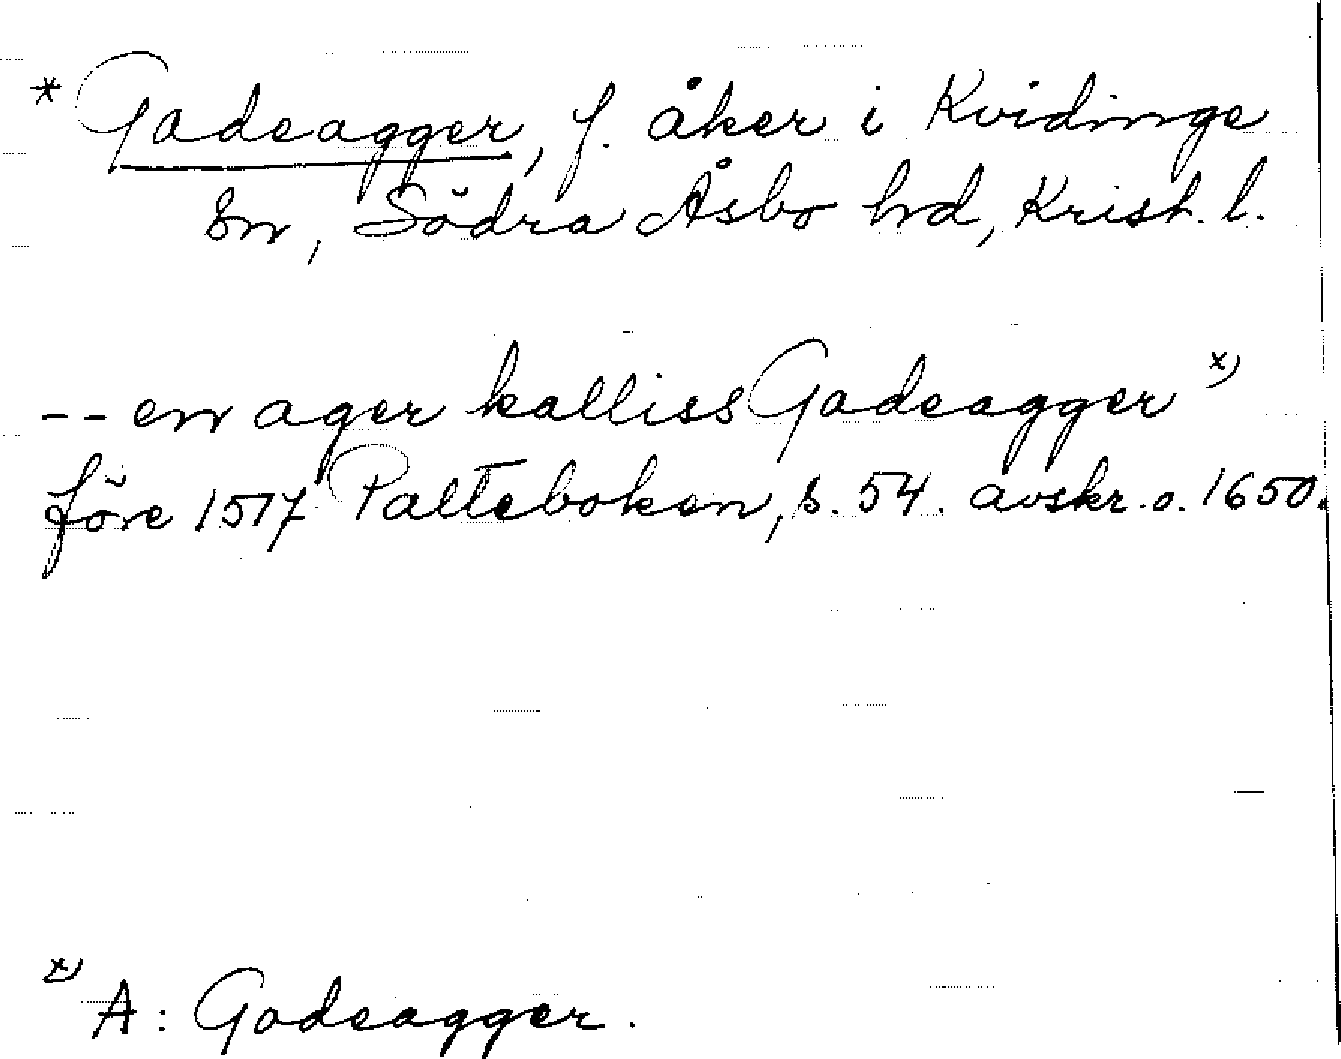 * Gadeagger, f. åker i Kvidinge
sn, Södra Åsbo hd, Krist. l.
-- en ager kalliss Gadeagger x)
före 1517 Palteboken, s. 54. avskr. o. 1650.
x) A: Godeagger.